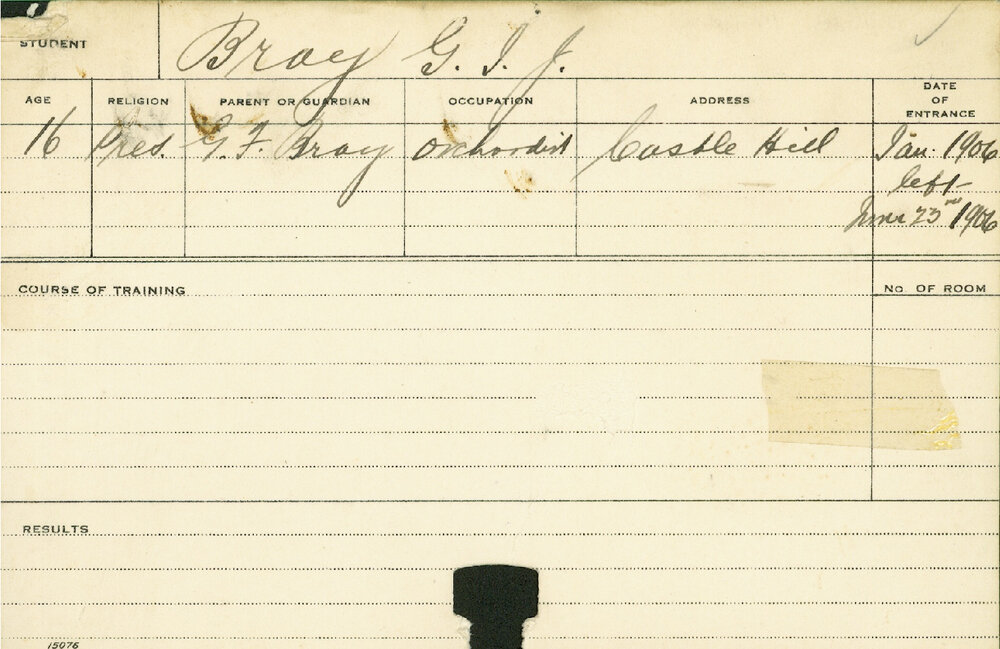 STUDENT Bray G. I. J.
AGE RELIGION PARENT OR GUARDIAN OCCUPATION ADDRESS DATE OF ENTRANCE
16 Pres. G. F. Bray Orchardist Castle Hill Jan. 1906
left
June 23rd 1906
COURSE OF TRAINING No. OF ROOM
RESULTS
15076